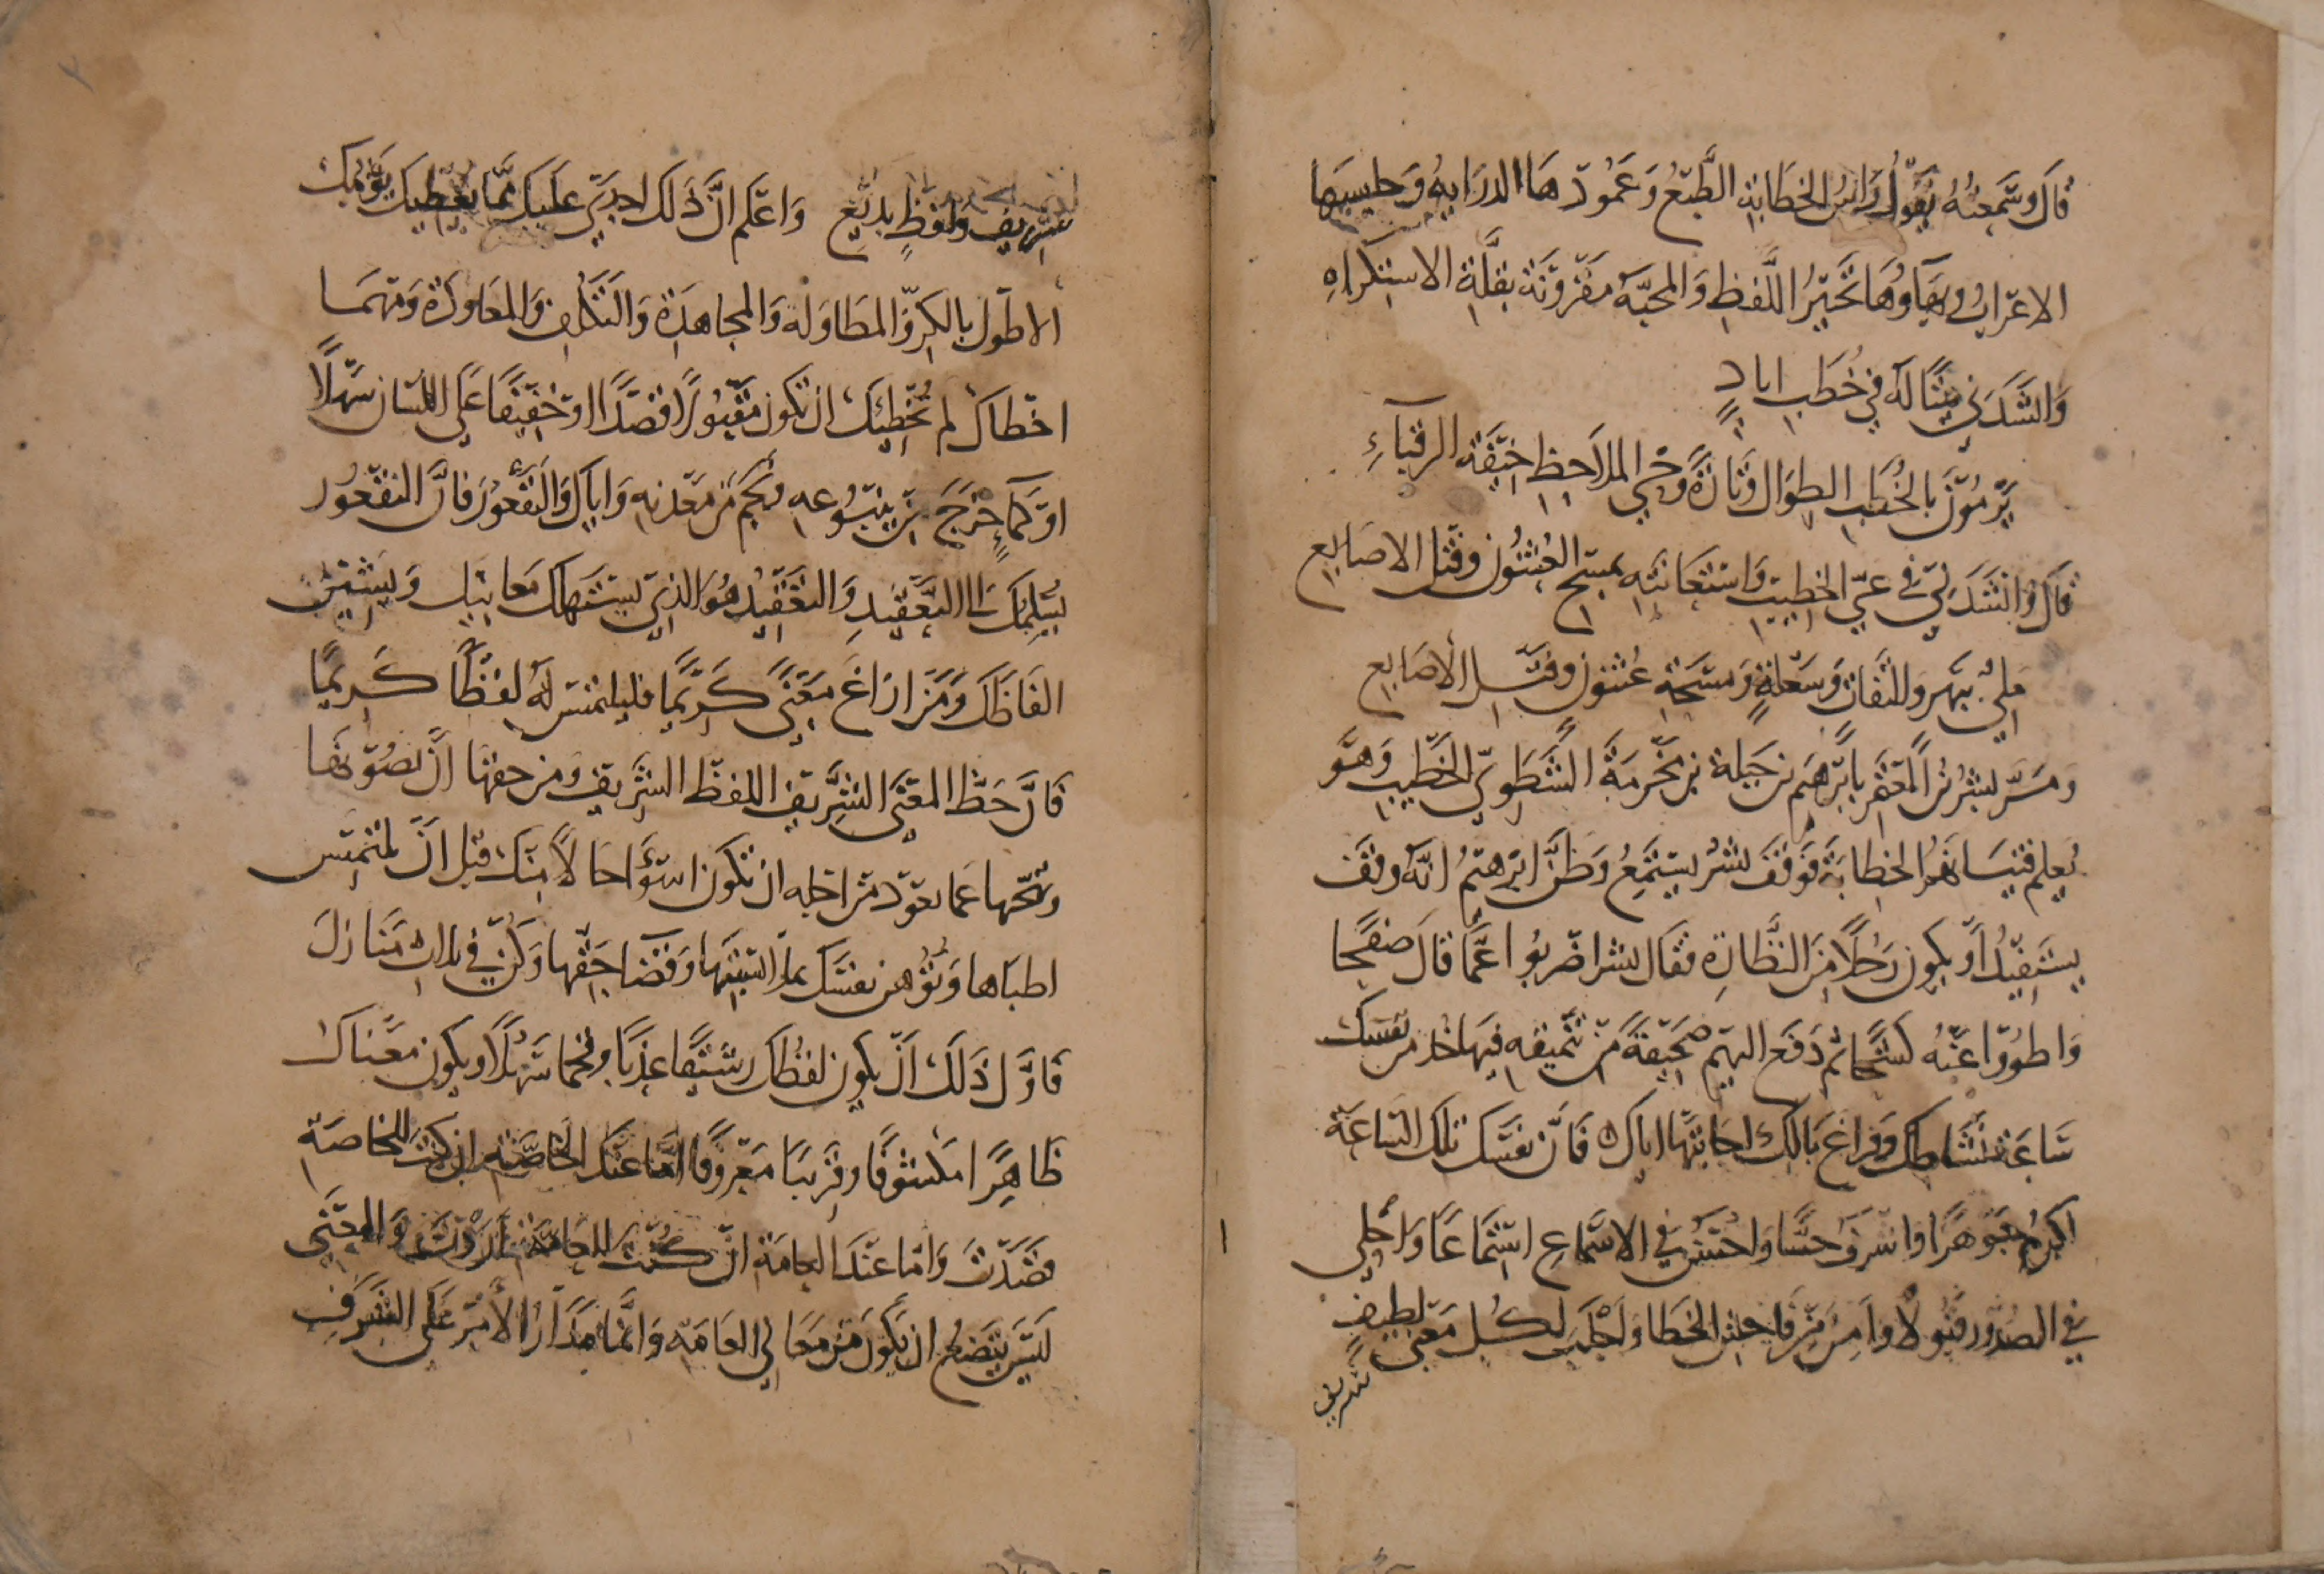 قَالَ وَسَمِعتُهُ يَقُولُ رَاسُ الخَطَابَةِ الطَّبْعُ وَعَمُودهَا الدرَايهُ وَحليبهَا
الاعرَابُ وبهَآوُهَا تَخَيّرُ اللَّفظِ وَالمحبّه مَقْرُونَة بقلَّةِ الاستكراهِ
وَانشَدَني بيتًا لَه في خُطَبِ ايادٍ
يَرْمُوْنَ بالخُطَبِ الطِوَالِ وَتَارَةً وَحْيَ المَلاَحِظِ خِيْفَة الرقبَآءِ
قَالَ وَانشَدَني في عىّ الخطيبِ وَاستعَانَتهِ بمسح العُثنُون وَفتل الاصَابع
مَلِىٌّ ببُهر وَالتفَاتٍ وَسَعْلَةٍ وَمسْحَةِ عُثنُون وفَتل الأَصَابع
وَمَرَّ بشرُ بنُ المُعْتَمر بابرهيم بن جَبلة بن مخرَمَةَ السَّطوي الخَطيب وَهو
يُعلم فتيَانهُم الخطابَة فَوَقَفَ بشر ليستَمِعُ وَظَنَّ ابرهيمُ انّه وقَفَ
ليستَفِيْدُ أَو يكون رَجُلاً مِنَ النظَّارةِ فَقال بشر اضربُوا عَمَّا قَالَ صَفحًا
وَاطوُوا عَنهُ كشحًا ثم دَفَع اليهم صَحِيْفَةً مِن تَنميقهِ فيهَا خُذ من نَفسِكَ
سَاعَة نَشَاطِكَ وَفراغ بَالِكَ وَاجابتهَا اياك فَانَّ نفسَكَ تلكَ السَاعَة
اكرَمُ جَوهَرًا وَاشرَفُ حسًّا وَاحسَنُ في الاسْمَاعِ استِمَاعًا وَاحلى
في الصُدُور قَبُولًا وَاسلمُ مِن فَاحِش الخَطا وَاَجلَبُ لكُلِّ مَعنى لطِيفٍ
شريف
شريف وَلفظٍ بَديع وَاعلم انَّ ذَلك اجدَى عليكَ ممَّا يعطيكَ يَوْمكَ
الاطوَل بالكدِّ وَالمطَاولَه وَالمجاهَدَة وَالتكلُّف وَالمعَاوَدَة وَمَهمَا
اخطاكَ لم يُخطِئكَ ان تكون مقبُولًا قصْدًا او خَفِيفًا عَلى اللسَان سَهْلًا
اوْ كمَا خَرَجَ مِن يَنبُوعهِ وَنجَم مِن مَعدنهِ وَاياكَ وَالتّقَعُّوْرَ فانَّ التقعُوْر
يُسلِمُكَ الى التعقيدِ وَالتعقِيْدُ هُوَ الذي يستَهلِكَ مَعَانيكَ وَيَشِيْنُ
الفَاظَكَ وَمَن اراغ مَعْنًى كَرِيمًا فليلتمس لَهُ لفظًا كَرِيمًا
فانَّ حَظَّ المعْنَى الشَّريفِ اللفظ الشَّرِيف وَمن حقهَا اَن تصُوْنهَا
وتنحّيها عمَا يعوْد مِن اجلهِ ان تكون اسوَأ حَالاً مِنكَ قبل ان تلتمِس
اظهَارها وَتُرهن نفسَكَ بملابسَتهَا وَقضَآ حَقِّهَا وَكن في ثلاث مَنَازل
فَاوَّل ذَلكَ اَن يكون لفظُك رَشيقًا عَذبًا وفخمًا سَهْلًا ويكون معْناك
ظاهِرًا مكشوفًا وقَرِيبًا مَعْروفًا امَّا عنَد الخَاصَّة ان كنت للخاصَة
قصَدتَ وَامَّا عنَدَ العامَة ان كُنتَ للعَامَّة اَرَدْتَ وَالمعنى
لَيسَ يتضعُ ان يَكونَ مِن مَعَاني العَامَة وَانَّما مَدَارُ الأَمر عَلى الشرَفِ